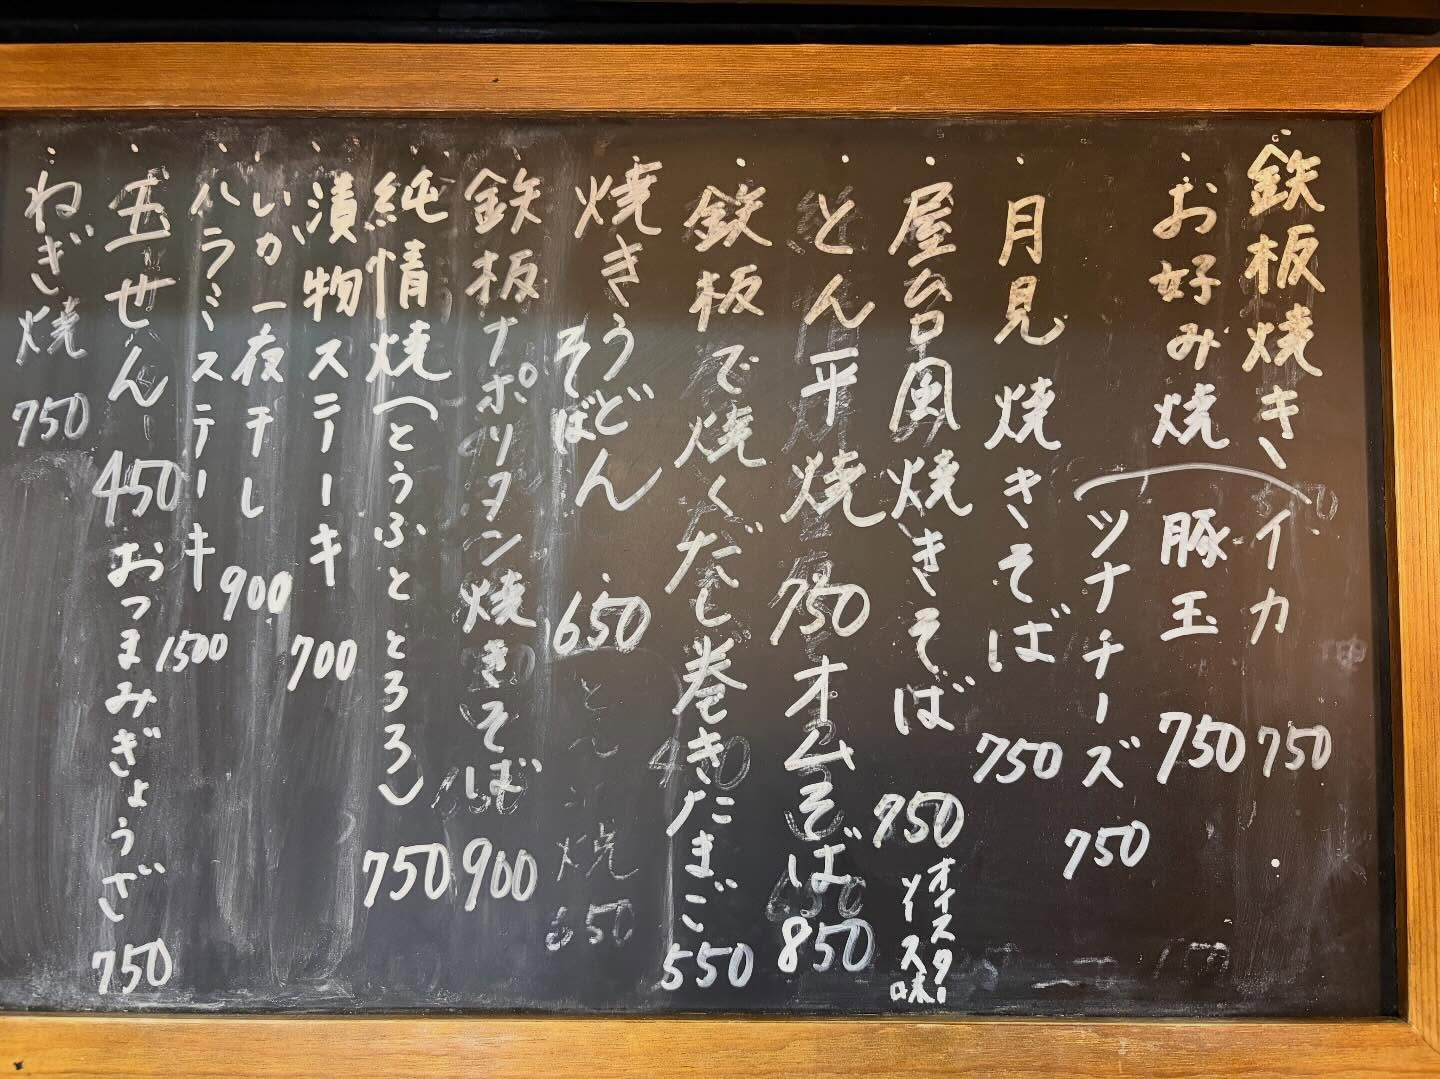 鉄板焼き
イカ 750
・お好み焼
豚玉 750
ツナチーズ 750
・月見焼きそば 750
・屋台風焼きそば 750
オイスターソース味
・とん平焼 750
オムそば 850
・鉄板で焼くだし巻きたまご 550
・焼きうどん
そばん
650
・鉄板ナポリタン焼きそば 900
・純情焼(とうふととろろ) 750
・漬物ステーキ 700
・いか一夜干し 900
・ハラミステーキ 1500
・玉せん 450
おつまみぎょうざ 750
・ねぎ焼 750